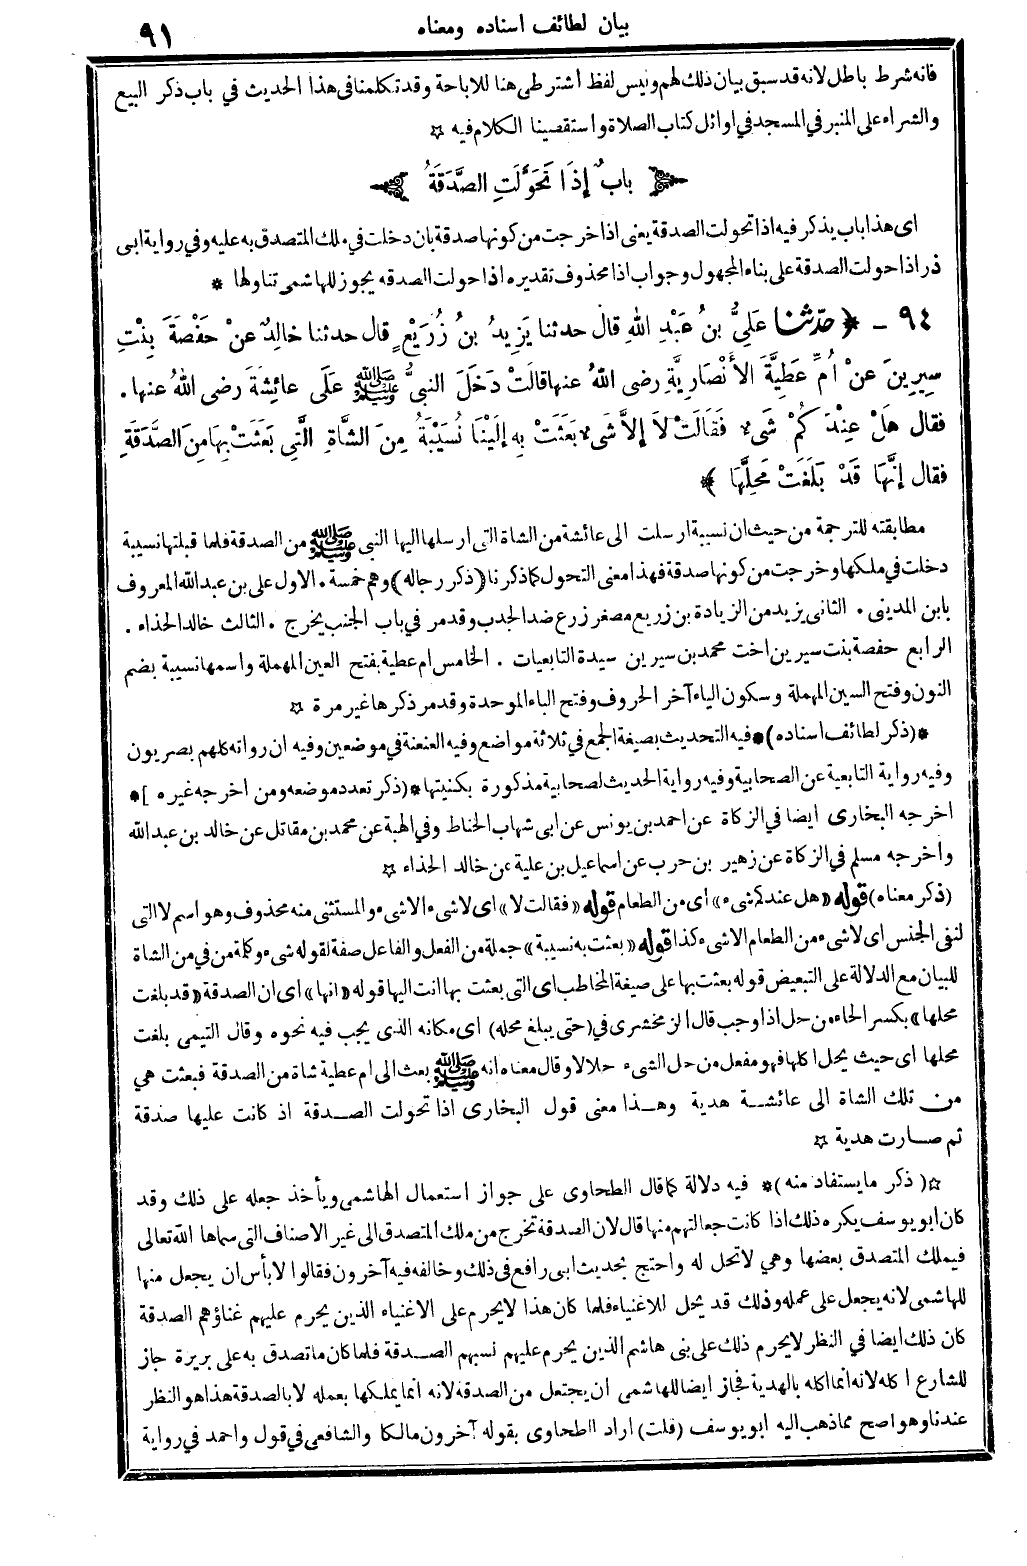 بيان لطائف اسناده ومعناه ٩١
فانه شرط باطل لانه قد سبق بيان ذلك لهم وليس لفظ اشترطى هنا للاباحة وقد تكلمنا فى هذا الحديث في باب ذكر البيع
والشراء على المنبر في المسجد في اوائل كتاب الصلاة واستقصينا الكلام فيه ☆
﴿ بابٌ إِذَا تَحَوَّلَتِ الصَّدَقَةُ ﴾
اى هذا باب يذكر فيه اذا تحولت الصدقة يعنى اذا خرجت من كونها صدقة بان دخلت في ملك المتصدق به عليه وفي رواية ابى
ذر اذا حولت الصدقة على بناء المجهول وجواب اذا محذوف تقديره اذا حولت الصدقه يجوز للهاشمى تناولها *
٩٤ - ﴿ حدّثنا عَلِيُّ بنُ عَبْدِ اللهِ قال حدثنا يَزِيدُ بنُ زُرَيْعٍ قال حدثنا خالِدٌ عنْ حَفْصَةَ بِنْتِ
سِيرِينَ عنْ أُمِّ عَطِيَّةَ الأَنْصَارِيَّةِ رضى اللهُ عنها قالَتْ دَخَلَ النبيُّ ﷺ عَلَى عائِشَةَ رضى اللهُ عنها.
فقال هَلْ عِنْدَكُمْ شَىْء فَقَالَتْ لاَ إلاَّ شَىْء بَعَثَتْ بِهِ إلَيْنَا نُسَيْبَةُ مِنَ الشَّاةِ الَّتِى بَعَثَتْ بِهَا مِنَ الصَّدَقَةِ
فقال إنَّهَا قَدْ بَلَغَتْ مَحِلَّهَا * ﴾
مطابقته للترجمة من حيث ان نسيبة ارسلت الى عائشة من الشاة التى ارسلها اليها النبى ﷺ من الصدقة فلما قبلتها نسيبة
دخلت في ملكها وخرجت من كونها صدقة فهذا معنى التحول كما ذكرنا (ذكر رجاله) وهم خمسة. الاول على بن عبد الله المعروف
بابن المدينى. الثانى يزيد من الزيادة بن زريع مصغر زرع ضد الجدب وقد مر في باب الجنب يخرج. الثالث خالد الحذاء.
الرابع حفصة بنت سيرين اخت محمد بن سيرين سيدة التابعيات. الخامس ام عطية بفتح العين المهملة واسمها نسيبة بضم
النون وفتح السين المهملة وسكون الياء آخر الحروف وفتح الباء الموحدة وقد مر ذكرها غير مرة ☆
*(ذكر لطائف اسناده)* فيه التحديث بصيغة الجمع في ثلاثة مواضع وفيه العنعنة في موضعين وفيه ان رواته كلهم بصريون
وفيه رواية التابعية عن الصحابية وفيه رواية الحديث لصحابية مذكورة بكنيتها *(ذكر تعدد موضعه ومن اخرجه غيره)*
اخرجه البخارى ايضا في الزكاة عن احمد بن يونس عن ابى شهاب الحناط وفي الهبة عن محمد بن مقاتل عن خالد بن عبد الله
واخرجه مسلم في الزكاة عن زهير بن حرب عن اسماعيل بن علية عن خالد الحذاء ☆
(ذكر معناه) قوله «هل عندكم شىء» اى من الطعام قوله «فقالت لا» اى لا شىء الا شىء والمستثنى منه محذوف وهو اسم لا التى
لنفى الجنس اى لا شىء من الطعام الا شىء كذا قوله «بعثت به نسيبة» جملة من الفعل والفاعل صفة لقوله شىء وكلمة من في من الشاة
للبيان مع الدلالة على التبعيض قوله بعثت بها على صيغة المخاطب اى التى بعثت بها انت اليها قوله «انها» اى ان الصدقة «قد بلغت
محلها» بكسر الحاء من حل اذا وجب قال الزمخشرى في (حتى يبلغ محله) اى مكانه الذى يجب فيه نحوه وقال التيمى بلغت
محلها اى حيث يحل اكلها فهو مفعل من حل الشىء حلالا وقال معناه انه ﷺ بعث الى ام عطية شاة من الصدقة فبعثت هي
من تلك الشاة الى عائشة هدية وهذا معنى قول البخارى اذا تحولت الصدقة اذ كانت عليها صدقة
ثم صارت هدية ☆
☆(ذكر ما يستفاد منه)* فيه دلالة كما قال الطحاوى على جواز استعمال الهاشمى ويأخذ جعله على ذلك وقد
كان ابو يوسف يكره ذلك اذا كانت جعالتهم منها قال لان الصدقة تخرج من ملك المتصدق الى غير الاصناف التى سماها الله تعالى
فيملك المتصدق بعضها وهي لا تحل له واحتج بحديث ابى رافع فى ذلك وخالفه فيه آخرون فقالوا لا بأس ان يجعل منها
للهاشمى لانه يجعل على عمله وذلك قد يحل للاغنياء فلما كان هذا لا يحرم على الاغنياء الذين يحرم عليهم غناؤهم الصدقة
كان ذلك ايضا في النظر لا يحرم ذلك على بنى هاشم الذين يحرم عليهم نسبهم الصدقة فلما كان ما تصدق به على بريرة جاز
للشارع اكله لانه انما اكله بالهدية فجاز ايضا للهاشمى ان يجتعل من الصدقة لانه انما يملكها بعمله لا بالصدقة هذا هو النظر
عندنا وهو اصح مما ذهب اليه ابو يوسف (قلت) اراد الطحاوى بقوله آخرون مالكا والشافعى في قول واحمد في رواية